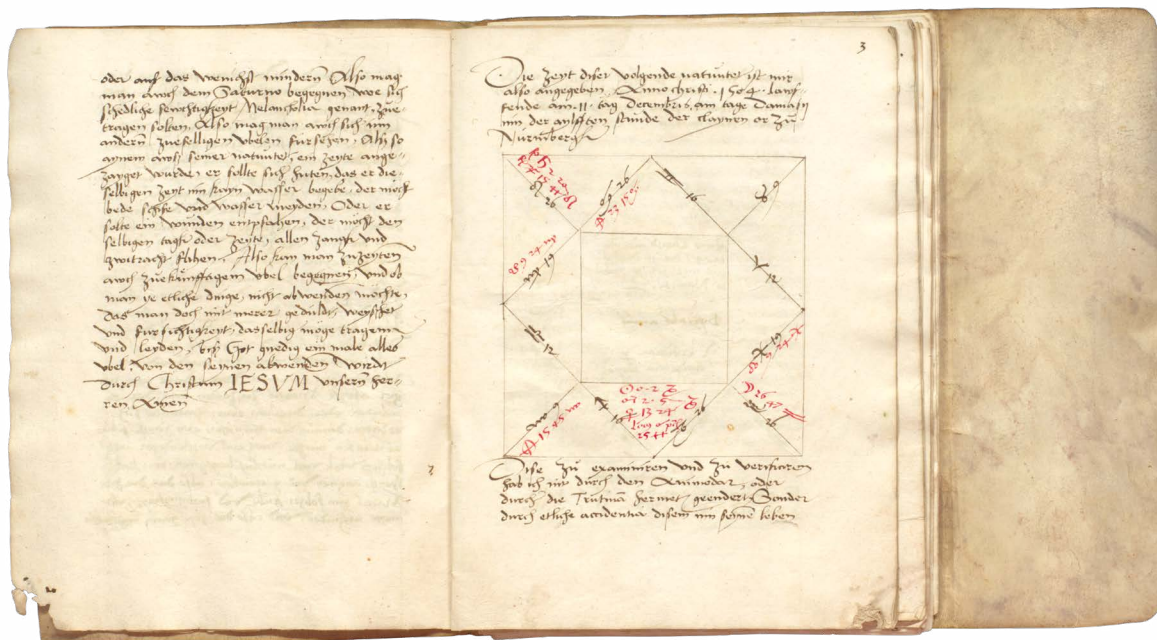 oder auf das wenichst mindern Also mag
man auch dem Saturno begegnen wer sich
schedliche feuchtigkeyt Melancholia genant, zue-
tragen solten, Also mag man auch sich inn
andern zuefelligen vbelen fursehen, Als so
aynem aws seiner natiuitet, ein zeyte ange-
zayget wurde, er sollte sich huten, das er die-
selbigen zeyt inn kayn wasser begebe, der möcht
bede schife vnd wasser meyden, Oder er
solte ein wunden entpfahen, der möcht den
selbigen tage oder zeyte, allen zangk vnd
zwitracht flihen, Also kan man zuzeyten
auch zuekunfftigem vbel begegnen, vnd ob
man ye etliche dinge, nicht abwenden möchte,
das man doch mit merer gedult, weyshet
vnd fursichtigkeyt, dasselbig möge tragenn
vnd leyden, bis Got gnedig ein male alles
vbel, von den seinen abwenden wirdt
durch Christum IESVM vnsern her-
ren Amen
3
Die zeyt diser volgende natiuitet ist mir
also angegeben Anno christi .1504. lauf-
fende am .11. tag decembris, am tage Damasij
inn der ailfften stunde der claynen or zu
Nürmbergk
♄
26
♋ 26
♊ 16
♉ 9
♍ 19
♈ 12
♎ 12
♓ 19
♏ 9
15 45
♐ 16
☉ 0 2 ♑
♂ 2 5 ♑
☿ 13 24
25 44
♑ 26
☽ 26 47
♒ 26
Dise zu examiniren vnd zu verificiren
hab ich mir durch den Animodar, oder
durch die Trutina hermet, geendert Sonder
durch etliche accidentia disem inn seinem leben